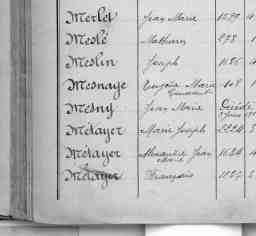 Merlet Jean Marie 1529
Meslé Mathurin 278 1
Meslin Joseph 1186
Mesnaye Eugène Marie 108
Mesny Jean Marie Décédé
Métayer Marie Joseph 2224
Métayer Alexandre Jean Marie 1624
Métayer François 1127 2